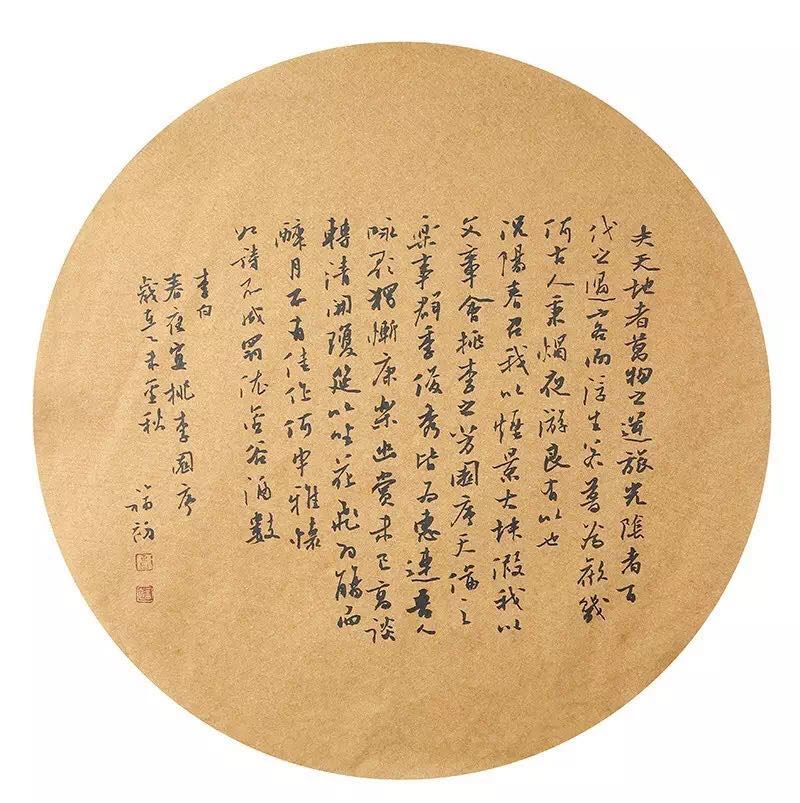 夫天地者萬物之逆旅光陰者百
代之過客而浮生若夢為歡幾
何古人秉燭夜游良有以也
況陽春召我以煙景大塊假我以
文章會桃李之芳園序天倫之
樂事群季俊秀皆為惠連吾人
詠歌獨慚康樂幽賞未已高談
轉清開瓊筵以坐花飛羽觴而
醉月不有佳作何申雅懷
如詩不成罰依金谷酒數
李白
春夜宴桃李園序
歲在乙未金秋